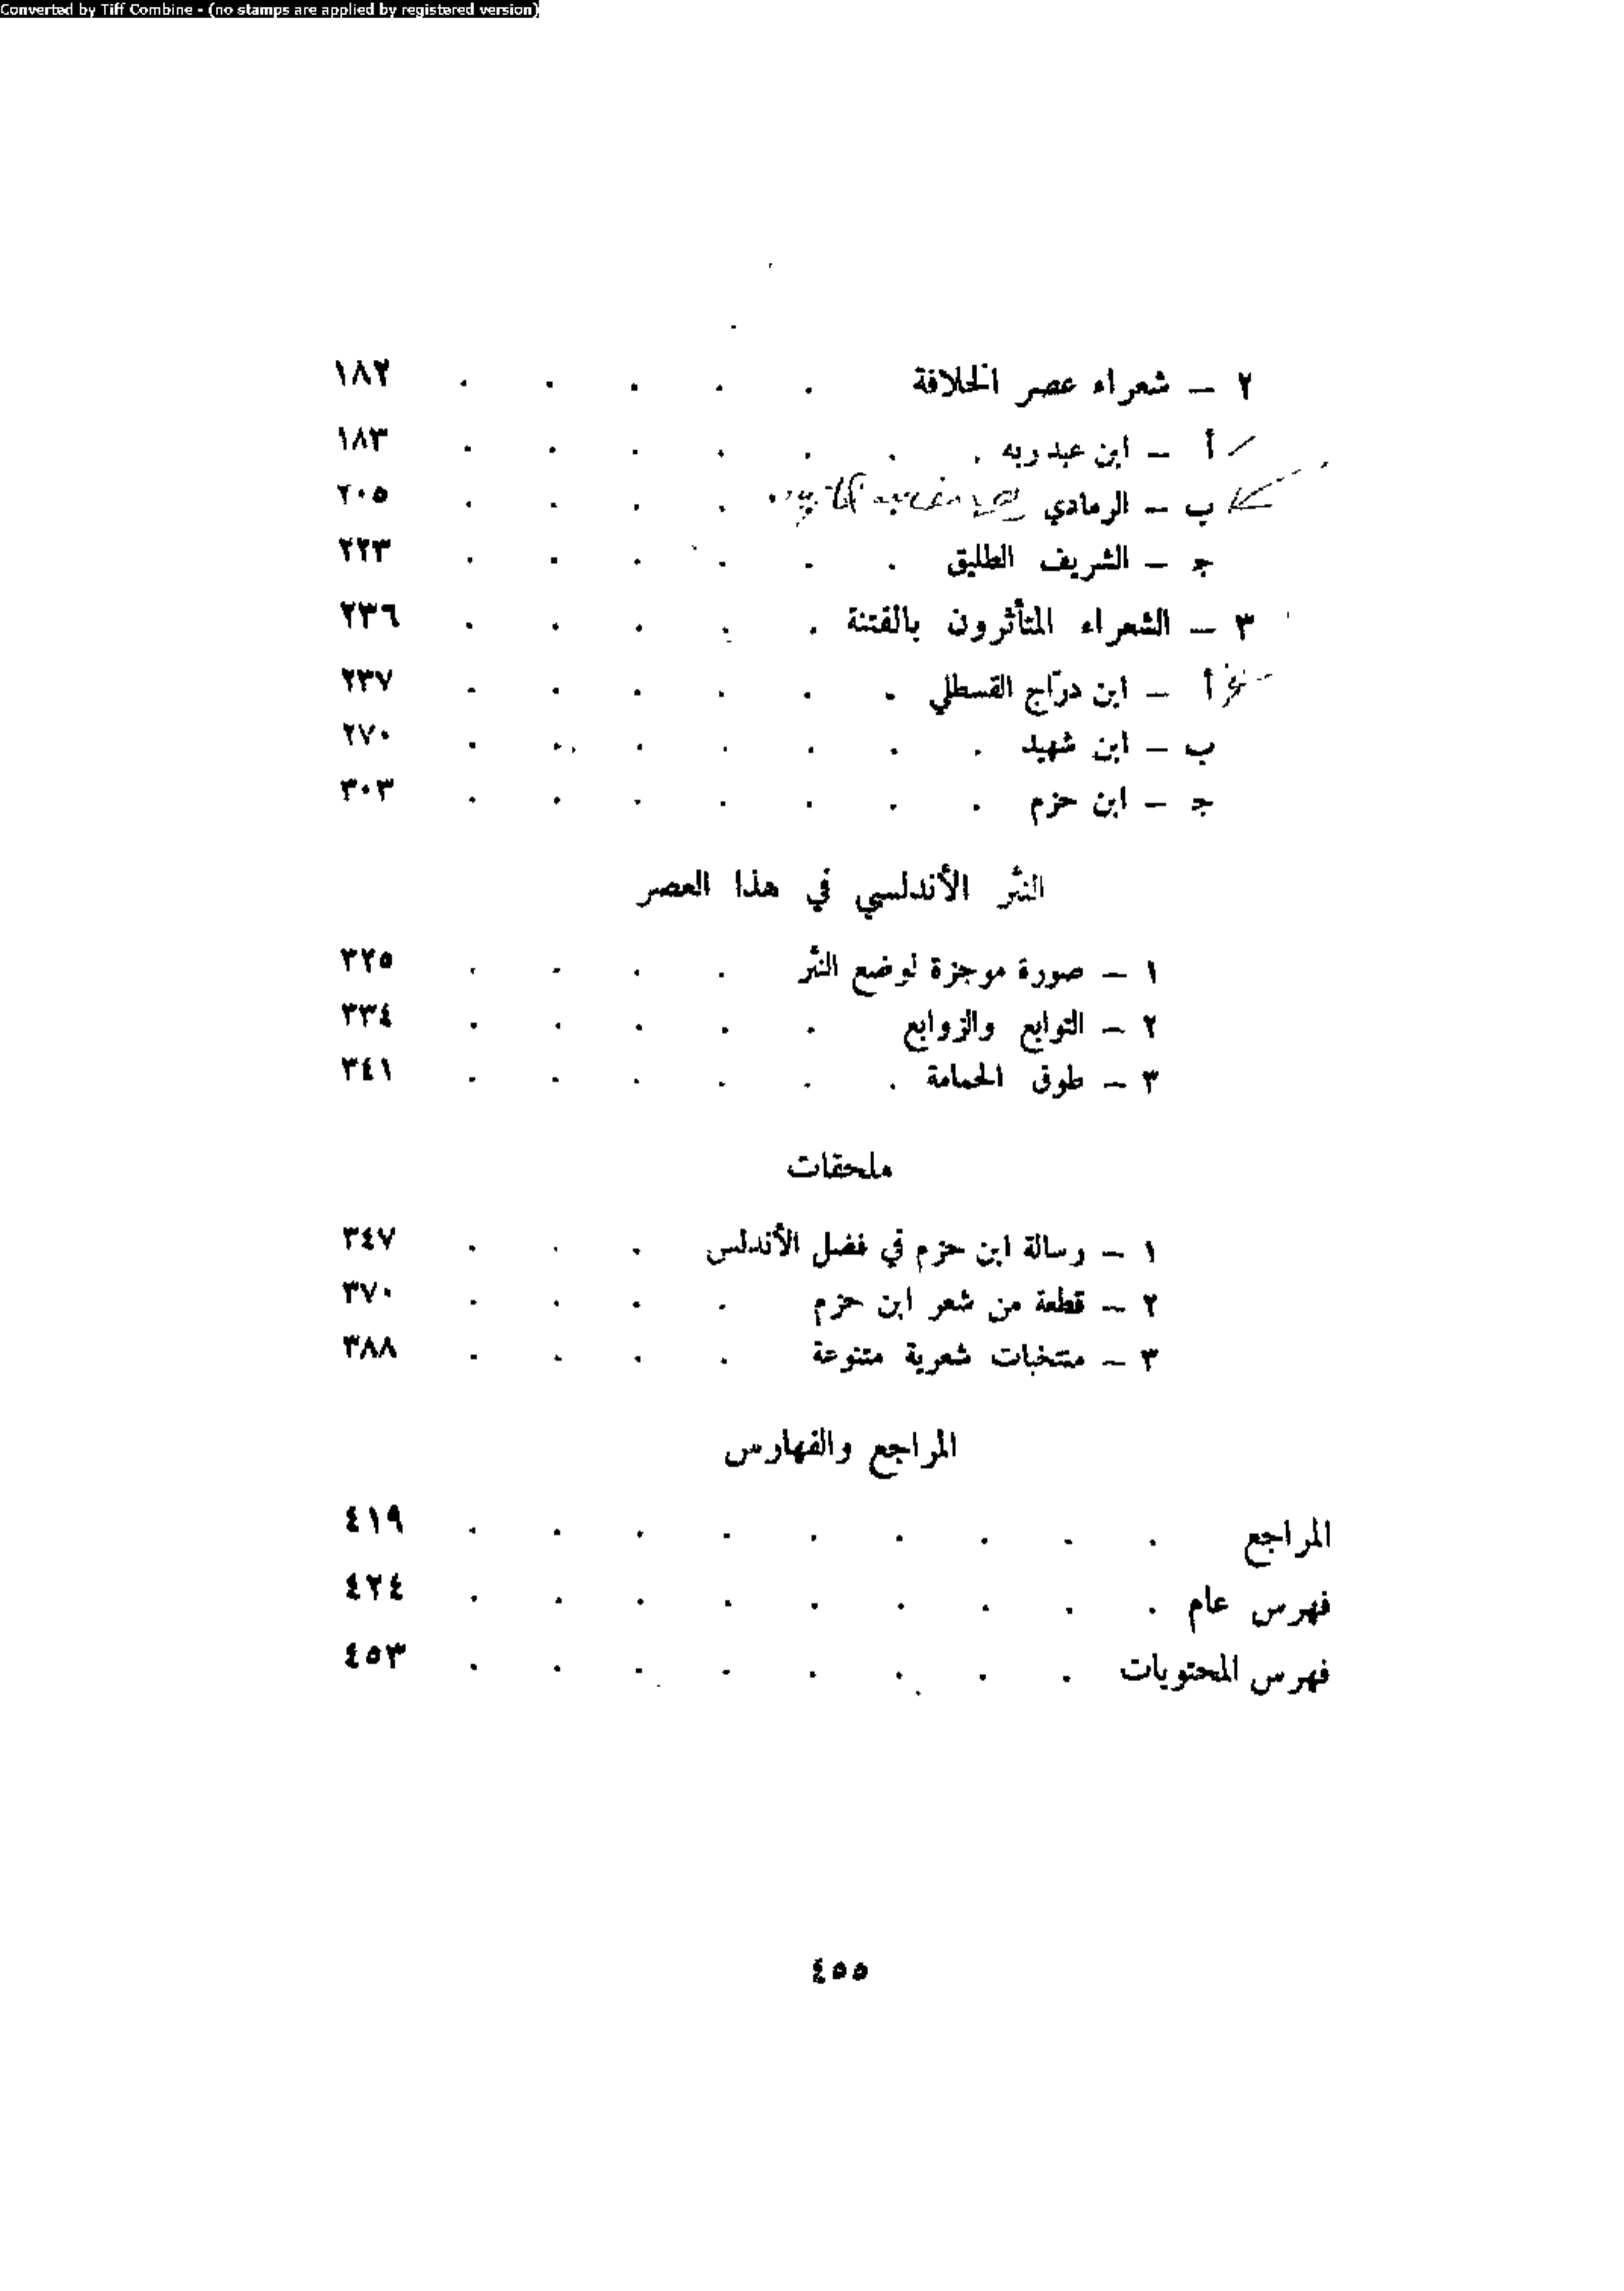 Converted by Tiff Combine - (no stamps are applied by registered version)
٢ – شعراء عصر الخلافة . . . . . ١٨٢
أ – ابن عبد ربه . . . . . . . ١٨٣
ب – الرمادي . . . . ٢٠٥
ج – الشريف الطليق . . . . . . ٢٢٣
٣ – الشعراء المتأثرون بالفتنة . . . . . ٢٣٦
أ – ابن درّاج القسطلي . . . . . . ٢٣٧
ب – ابن شهيد . . . . . . . ٢٧٠
ج – ابن حزم . . . . . . . ٣٠٣
النثر الأندلسي في هذا العصر
١ – صورة موجزة لوضع النثر . . . . ٣٢٥
٢ – التوابع والزوابع . . . . . ٣٣٤
٣ – طوق الحمامة . . . . . . ٣٤١
ملحقات
١ – رسالة ابن حزم في فضل الأندلس . . . ٣٤٧
٢ – قطعة من شعر ابن حزم . . . . ٣٧٠
٣ – منتخبات شعرية متنوعة . . . . ٣٨٨
المراجع والفهارس
المراجع . . . . . . . . . ٤١٩
فهرس عام . . . . . . . . . ٤٢٤
فهرس المحتويات . . . . . . . . ٤٥٣
٤٥٥